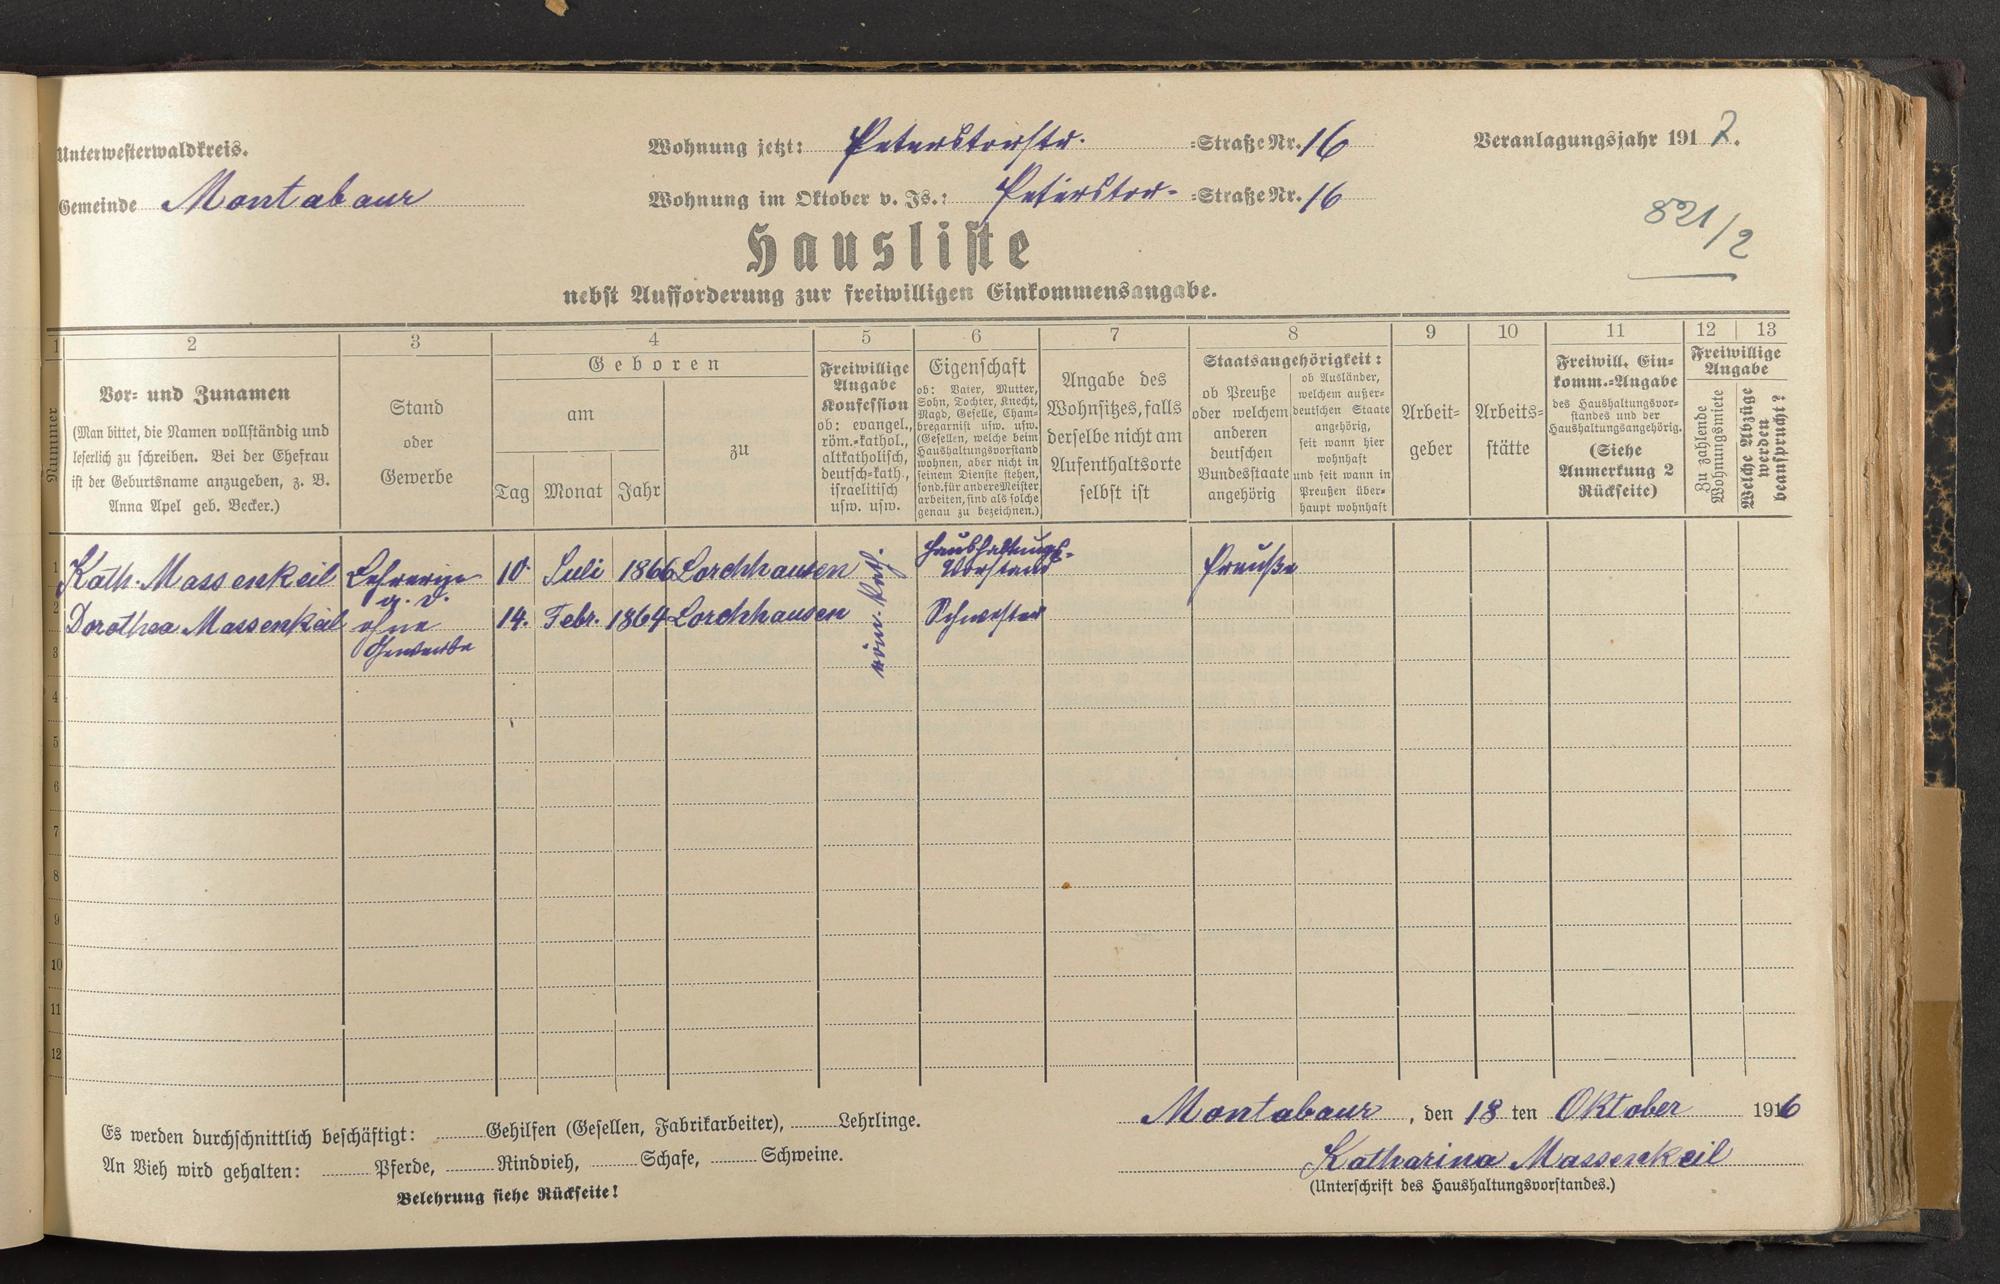 Unterwesterwaldkreis.
Wohnung jetzt: Peterstorstr. =Straße Nr. 16
Veranlagungsjahr 1917.
Gemeinde Montabaur
Wohnung im Oktober v. Js.: Peterstor- =Straße Nr. 16
821/2
Hausliste
nebst Aufforderung zur freiwilligen Einkommensangabe.
1 2 3 4 5 6 7 8 9 10 11 12 13
Nummer
Vor- und Zunamen
(Man bittet, die Namen vollständig und
leserlich zu schreiben. Bei der Ehefrau
ist der Geburtsname anzugeben, z. B.
Anna Apel geb. Becker.)
Stand
oder
Gewerbe
Geboren
am
Tag Monat Jahr
zu
Freiwillige
Angabe
Konfession
ob: evangel.,
röm.-kathol.,
altkatholisch,
deutsch-kath.,
israelitisch
usw. usw.
Eigenschaft
ob: Vater, Mutter,
Sohn, Tochter, Knecht,
Magd, Geselle, Cham-
bregarnist usw. usw.
(Gesellen, welche beim
Haushaltungsvorstand
wohnen, aber nicht in
seinem Dienste stehen,
sond. für andere Meister
arbeiten, sind als solche
genau zu bezeichnen.)
Angabe des
Wohnsitzes, falls
derselbe nicht am
Aufenthaltsorte
selbst ist
Staatsangehörigkeit:
ob Preuße
oder welchem
anderen
deutschen
Bundesstaate
angehörig
ob Ausländer,
welchem außer-
deutschen Staate
angehörig,
seit wann hier
wohnhaft
und seit wann in
Preußen über-
haupt wohnhaft
Arbeit-
geber
Arbeits-
stätte
Freiwill. Ein-
komm.-Angabe
des Haushaltungsvor-
standes und der
Haushaltungsangehörig.
(Siehe
Anmerkung 2
Rückseite)
Freiwillige
Angabe
Zu zahlende
Wohnungsmiete
Welche Abzüge
werden
beansprucht?
1 Kath. Massenkeil Lehrerin a. D. 10. Juli 1866 Lorchhausen röm. kath. Haushaltungs-Vorstand Preuße
2 Dorothea Massenkeil ohne Gewerbe 14. Febr. 1864 Lorchhausen Schwester
3
4
5
6
7
8
9
10
11
12
Es werden durchschnittlich beschäftigt: Gehilfen (Gesellen, Fabrikarbeiter), Lehrlinge.
An Vieh wird gehalten: Pferde, Rindvieh, Schafe, Schweine.
Belehrung siehe Rückseite!
Montabaur, den 18 ten Oktober 1916
Katharina Massenkeil
(Unterschrift des Haushaltungsvorstandes.)